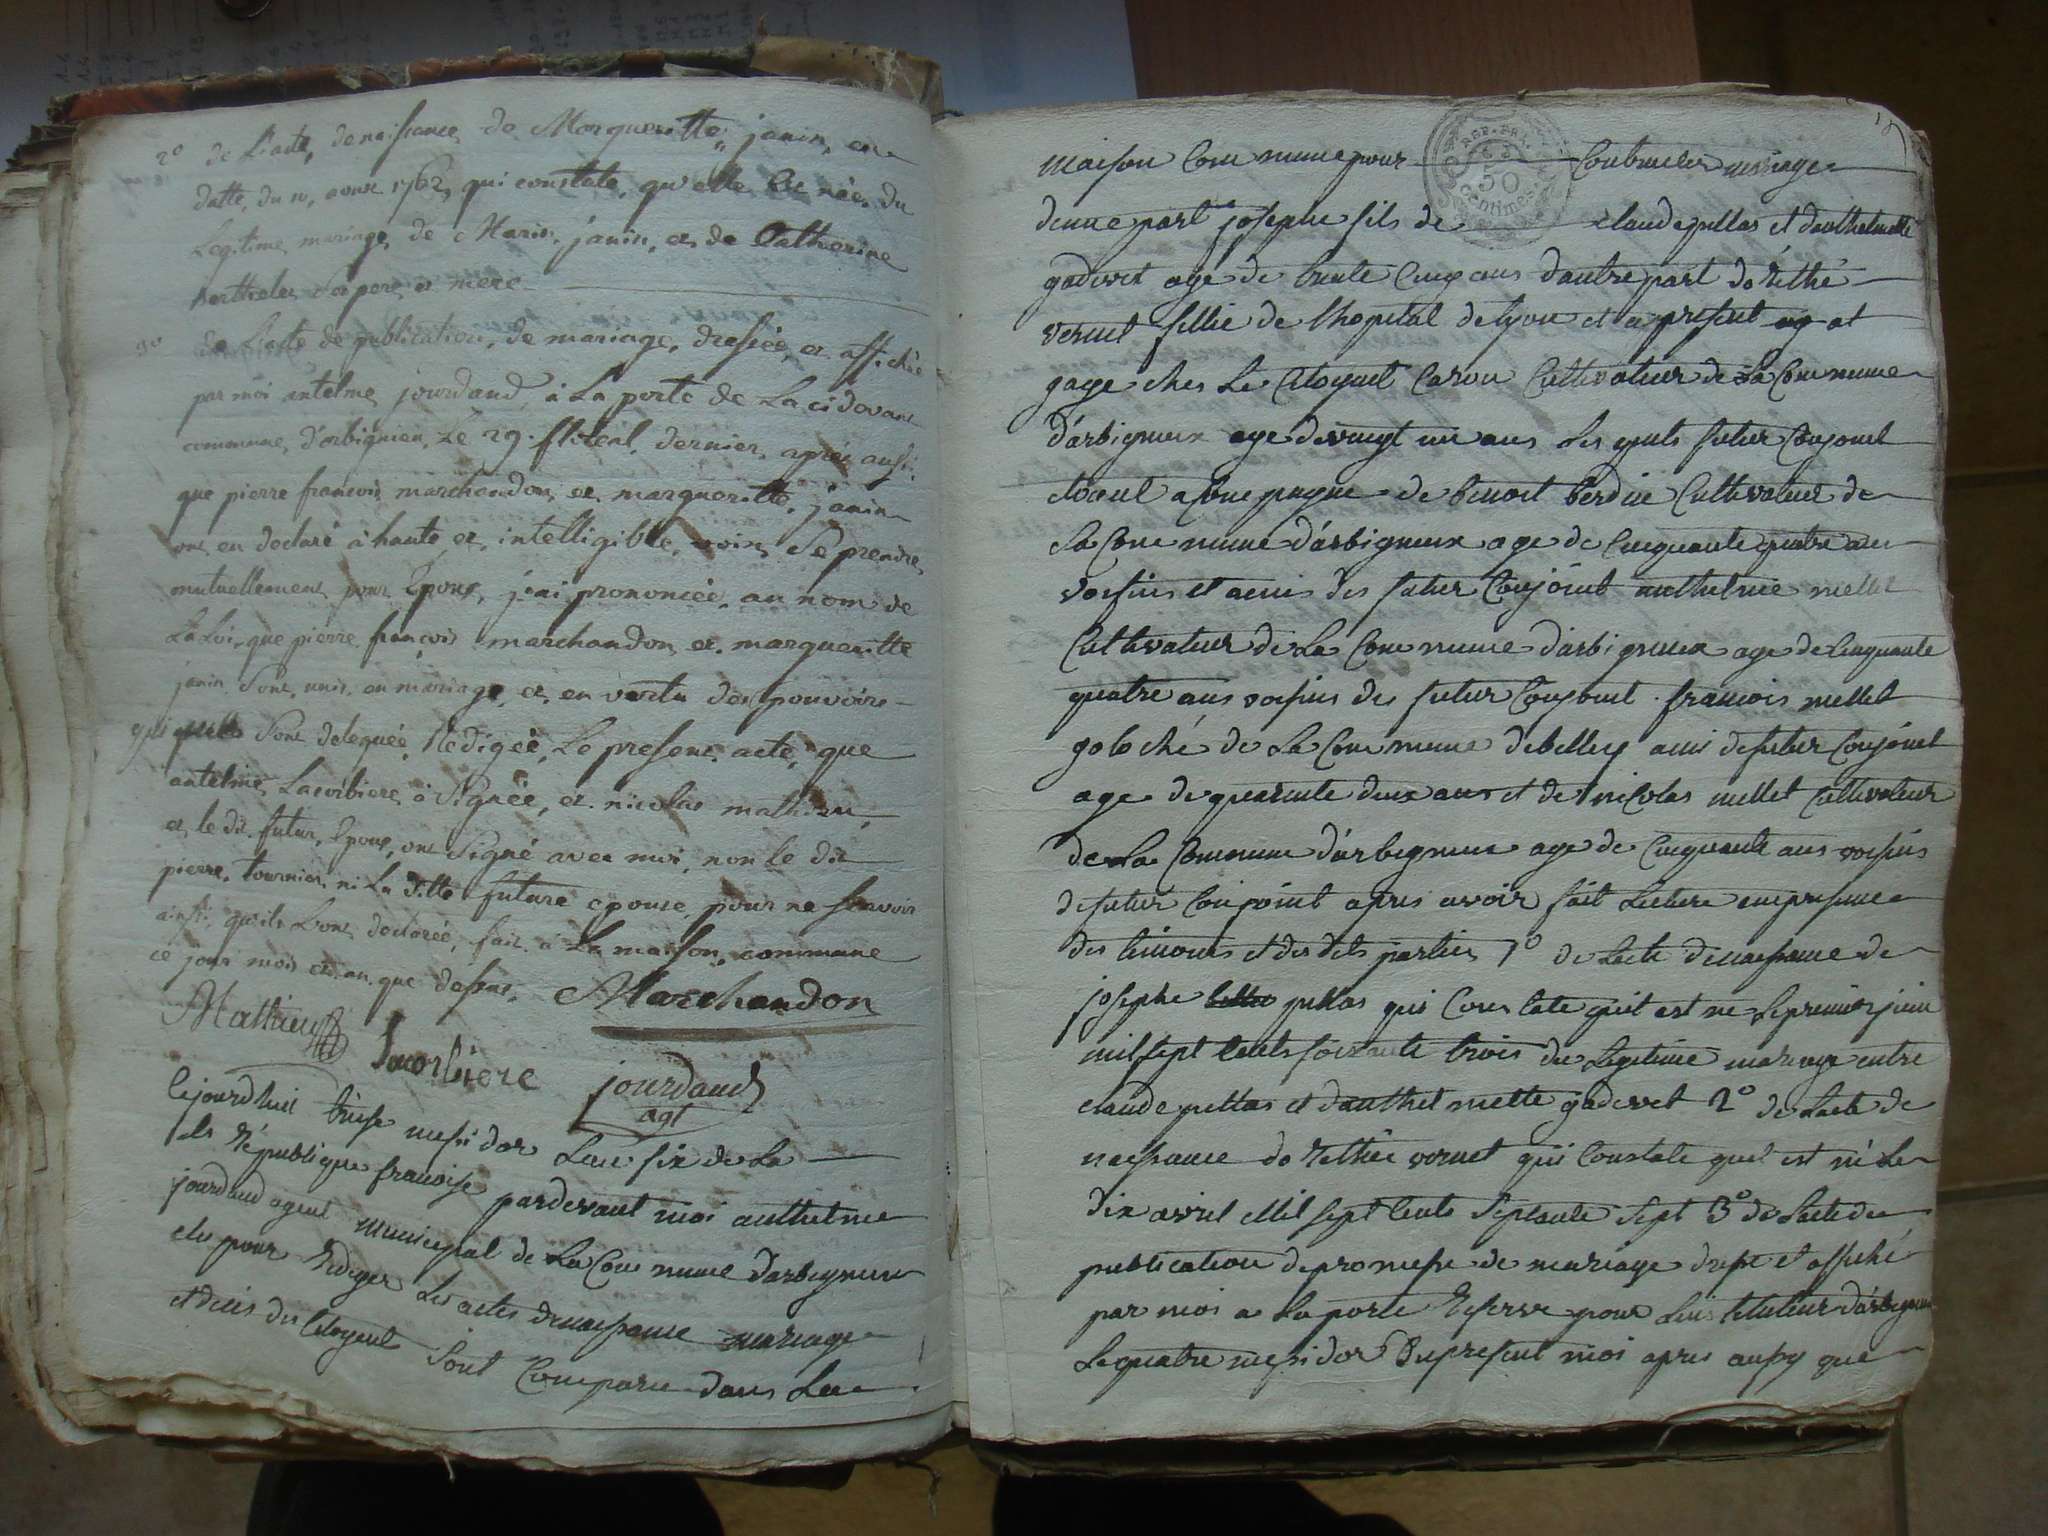 2° de L'acte, de naissance de Margueritte, janin, en
datte, du 10, avril 1762, qui constate, qu'elle Est née, du
Legitime, mariage, de Marin, janin, et, de Catherine
berthelet Ses pere, et mere
3° de L'acte de publication, de mariage, dressée, et, affichée
par moi antelme, jourdand, à La porte de La cidevant
commune, d'arbignieu, Le 29. floréal, dernier, aprés aussi
que pierre francois, marchandon, et, margueritte, janin
ont, en declaré à haute, et, intelligible, voix, Se prendre,
mutuellement, pour Epoux, j'ai, prononcée, au nom de
La Loi, que pierre, françois marchandon, et, margueritte
janin, Sont, unis, en mariage, et, en vertu des pouvoirs
qui Sont deleguée, Redigée, Le present, acte, que
antelme, Lacorbiere, à Signée, et, nicolas mathieu,
et, le dit, futur, Epoux, ont Signé avec moi, non le dit
pierre, tournier, ni La ditte future epouse, pour ne Sçavoir
ainsi, qu'ils L'ont, declarée, fait, à La maison, commune
ce jour, mois et an, que dessus,
Marchandon
Mathieu
Lacorbiere
jourdand
agt
Cejourdhuit treise messidor Lan six de La
republique francoise pardevant moi anthelme
jourdand agent municipal de La Commune d'arbigneux
elu pour Rediger Les actes denaissance mariage
et déces des Citoyent Sont Comparu dans La
maison Commune pour Contracter mariage
REP. FRA.
50
Centimes
dune part josephe fils de claude pellas et danthelmette
godivet age de trente Cinq ans dautre part dorethé
vernet fillie de lhopital de Lyon et a present
gage ches Le Citoyent Caron Cultivateur de La Commune
d'arbigneux age devingt un ans Les quels futur Conjoint
etoient acompagne de benoit berdin Cultivateur de
La Commune d'arbigneux age de Cinquante quatre ans
voisins et amis des futur Conjoint anthelme mellet
Cultivateur de La Commune d'arbigneux age de Cinquante
quatre ans voisins des futur Conjoint. francois mellet
goloché de La Commune debelley ami de futur Conjoint
age de quarente deux ans et de nicolas mellet Cultivateur
de La Commune d'arbigneux age de Cinquante ans voisins
de futur Conjoint apres avoir fait Lecture enpresence
des temoins et des dits parties 1° de Lacte denaissance de
josephe pellas qui Constate quit est ne Le premier juin
mil sept Cents soixante trois du Legitime mariage entre
claude pellas et danthelmette godivet 2° de Lacte de
naissance dorethée vernet qui Constate quel est né Le
dix avril Mil sept Cents septante sept 3° de Lacte de
publication de promesse de mariage dressé et affiché
par moi a La porte Reserve pour Linstituteur d'arbigneux
Le quatre messidor du present mois apres aussy que